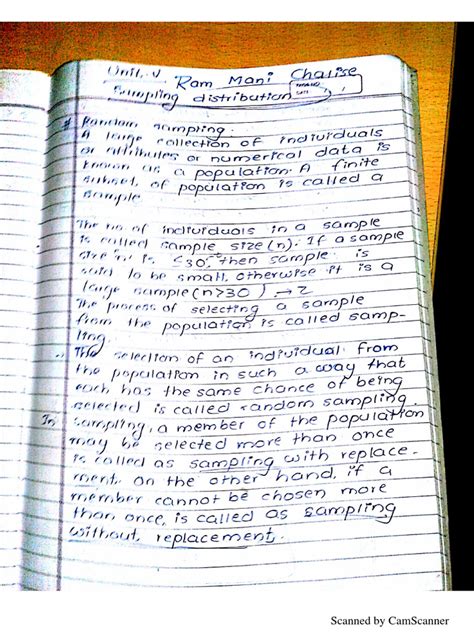 Unit. V Ram Mani Chalise
Sampling distribution
# Random sampling.
A large collection of individuals
or attributes or numerical data is
known as a population. A finite
subset of population is called a
sample
The no of individuals in a sample
is called sample size (n). If a sample
size is <30, then sample is
said to be small, otherwise it is a
large sample (n>30) → Z
The process of selecting a sample
from the population is called samp-
ling.
The selection of an individual from
the population in such a way that
each has the same chance of being
selected is called random sampling.
In sampling, a member of the population
may be selected more than once
is called as sampling with replace-
ment. On the other hand, if a
member cannot be chosen more
than once, is called as sampling
without replacement.
Scanned by CamScanner